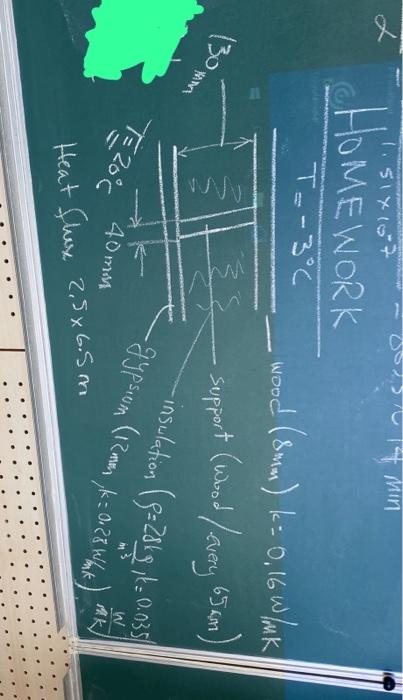 α
1.51x10⁻⁷
14 min
HOMEWORK
T=-3°C
130mm
wood (8mm) k=0.16 W/mK
support (wood/every 65cm)
insulation (ρ=28kg/m³, k=0.035 W/mK)
gypsium (12mm, k=0.28 W/mK)
T=20°C
40mm
Heat flux 2,5 x 6.5m